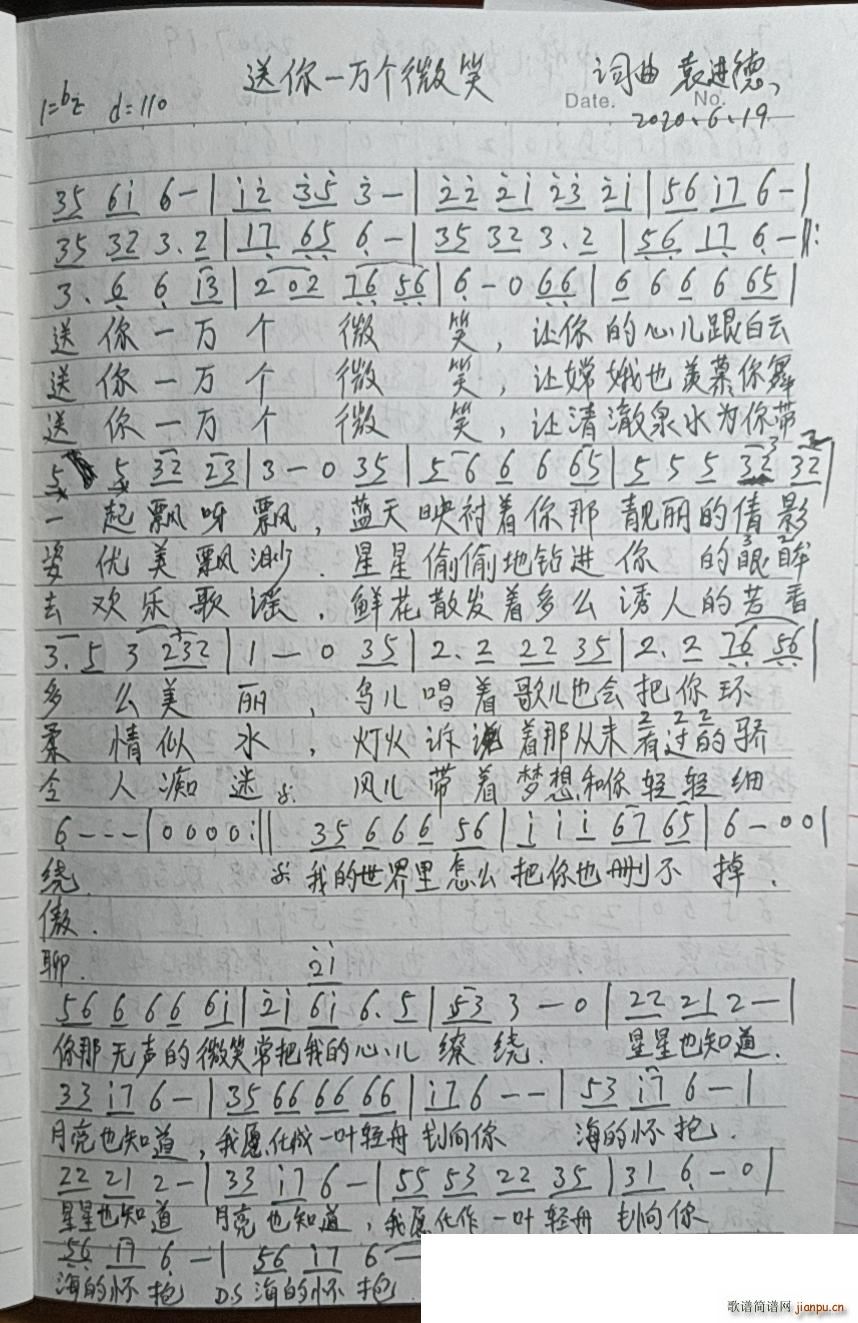 送你一万个微笑 词曲 袁进德、
Date. No.
1=bE d=110 2020、6、19
35 6i 6-| i2 35 3-| 22 2i 23 2i| 56 i7 6-|
35 32 3.2| 17 65 6-| 35 32 3.2| 56 17 6-‖:
3.6 6 13| 2 02 76 56| 6-0 66| 6 6 6 6 65|
送你一万个 微 笑，让你的心儿跟白云
送你一万个 微 笑，让嫦娥也羡慕你舞
送你一万个 微 笑，让清澈泉水为你带
5 5 32 23| 3-0 35| 56 6 6 65| 5 5 5 32 32|
一起飘呀飘，蓝天映衬着你那靓丽的倩影
姿优美飘渺．星星偷偷地钻进你 的眼眸
去欢乐歌谣．鲜花散发着多么诱人的芳香
3.5 3 232| 1-0 35| 2.2 22 35| 2.2 76 56|
多 么美 丽，鸟儿唱着歌儿也会把你环
柔 情似 水，灯火诉说着那从未有过的骄
令 人痴 迷 风儿带着梦想和你轻轻细
6---|0000:‖ 35 6 6 6 56| i i i 67 65| 6-00|
绕． 我的世界里怎么把你也删不掉．
傲．
聊． 2i
56 6 6 6 6i| 2i 6i 6.5| 53 3-0| 22 21 2-|
你那无声的微笑常把我的心儿缭绕． 星星也知道．
33 i7 6-| 35 66 66 66| i7 6--| 53 i7 6-|
月亮也知道，我愿化成一叶轻舟划向你 海的怀抱．
22 21 2-| 33 i7 6-| 55 53 22 35| 31 6-0|
星星也知道 月亮也知道，我愿化作一叶轻舟划向你
56 17 6-| 56 17 6-
海的怀抱 DS 海的怀抱
歌谱简谱网 jianpu.cn